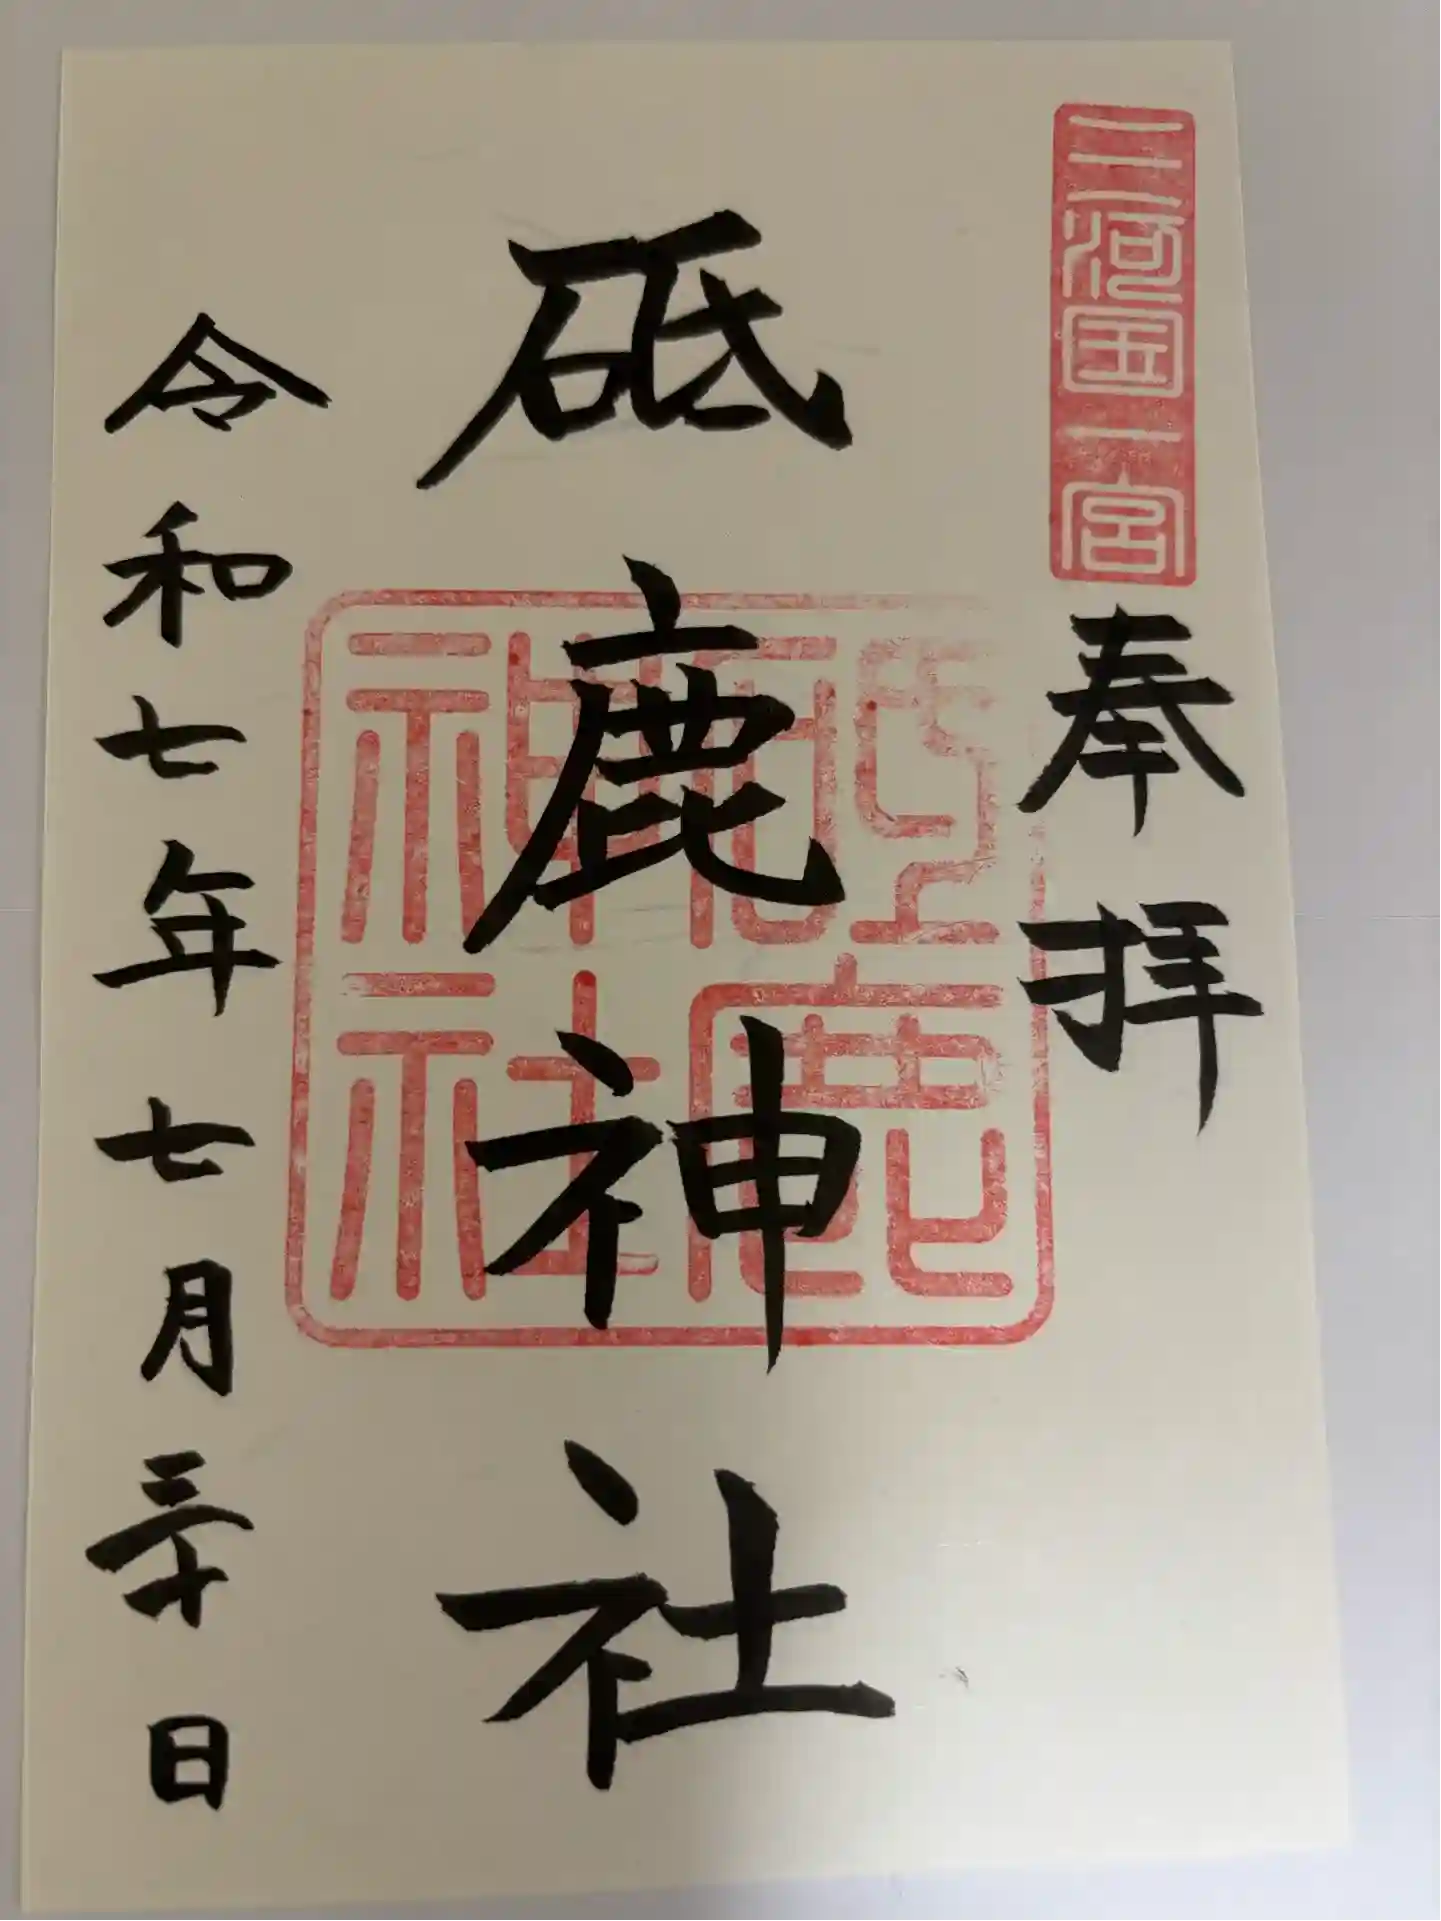 三河国一宮
奉拝
砥鹿神社
砥鹿神社
令和七年七月三十日